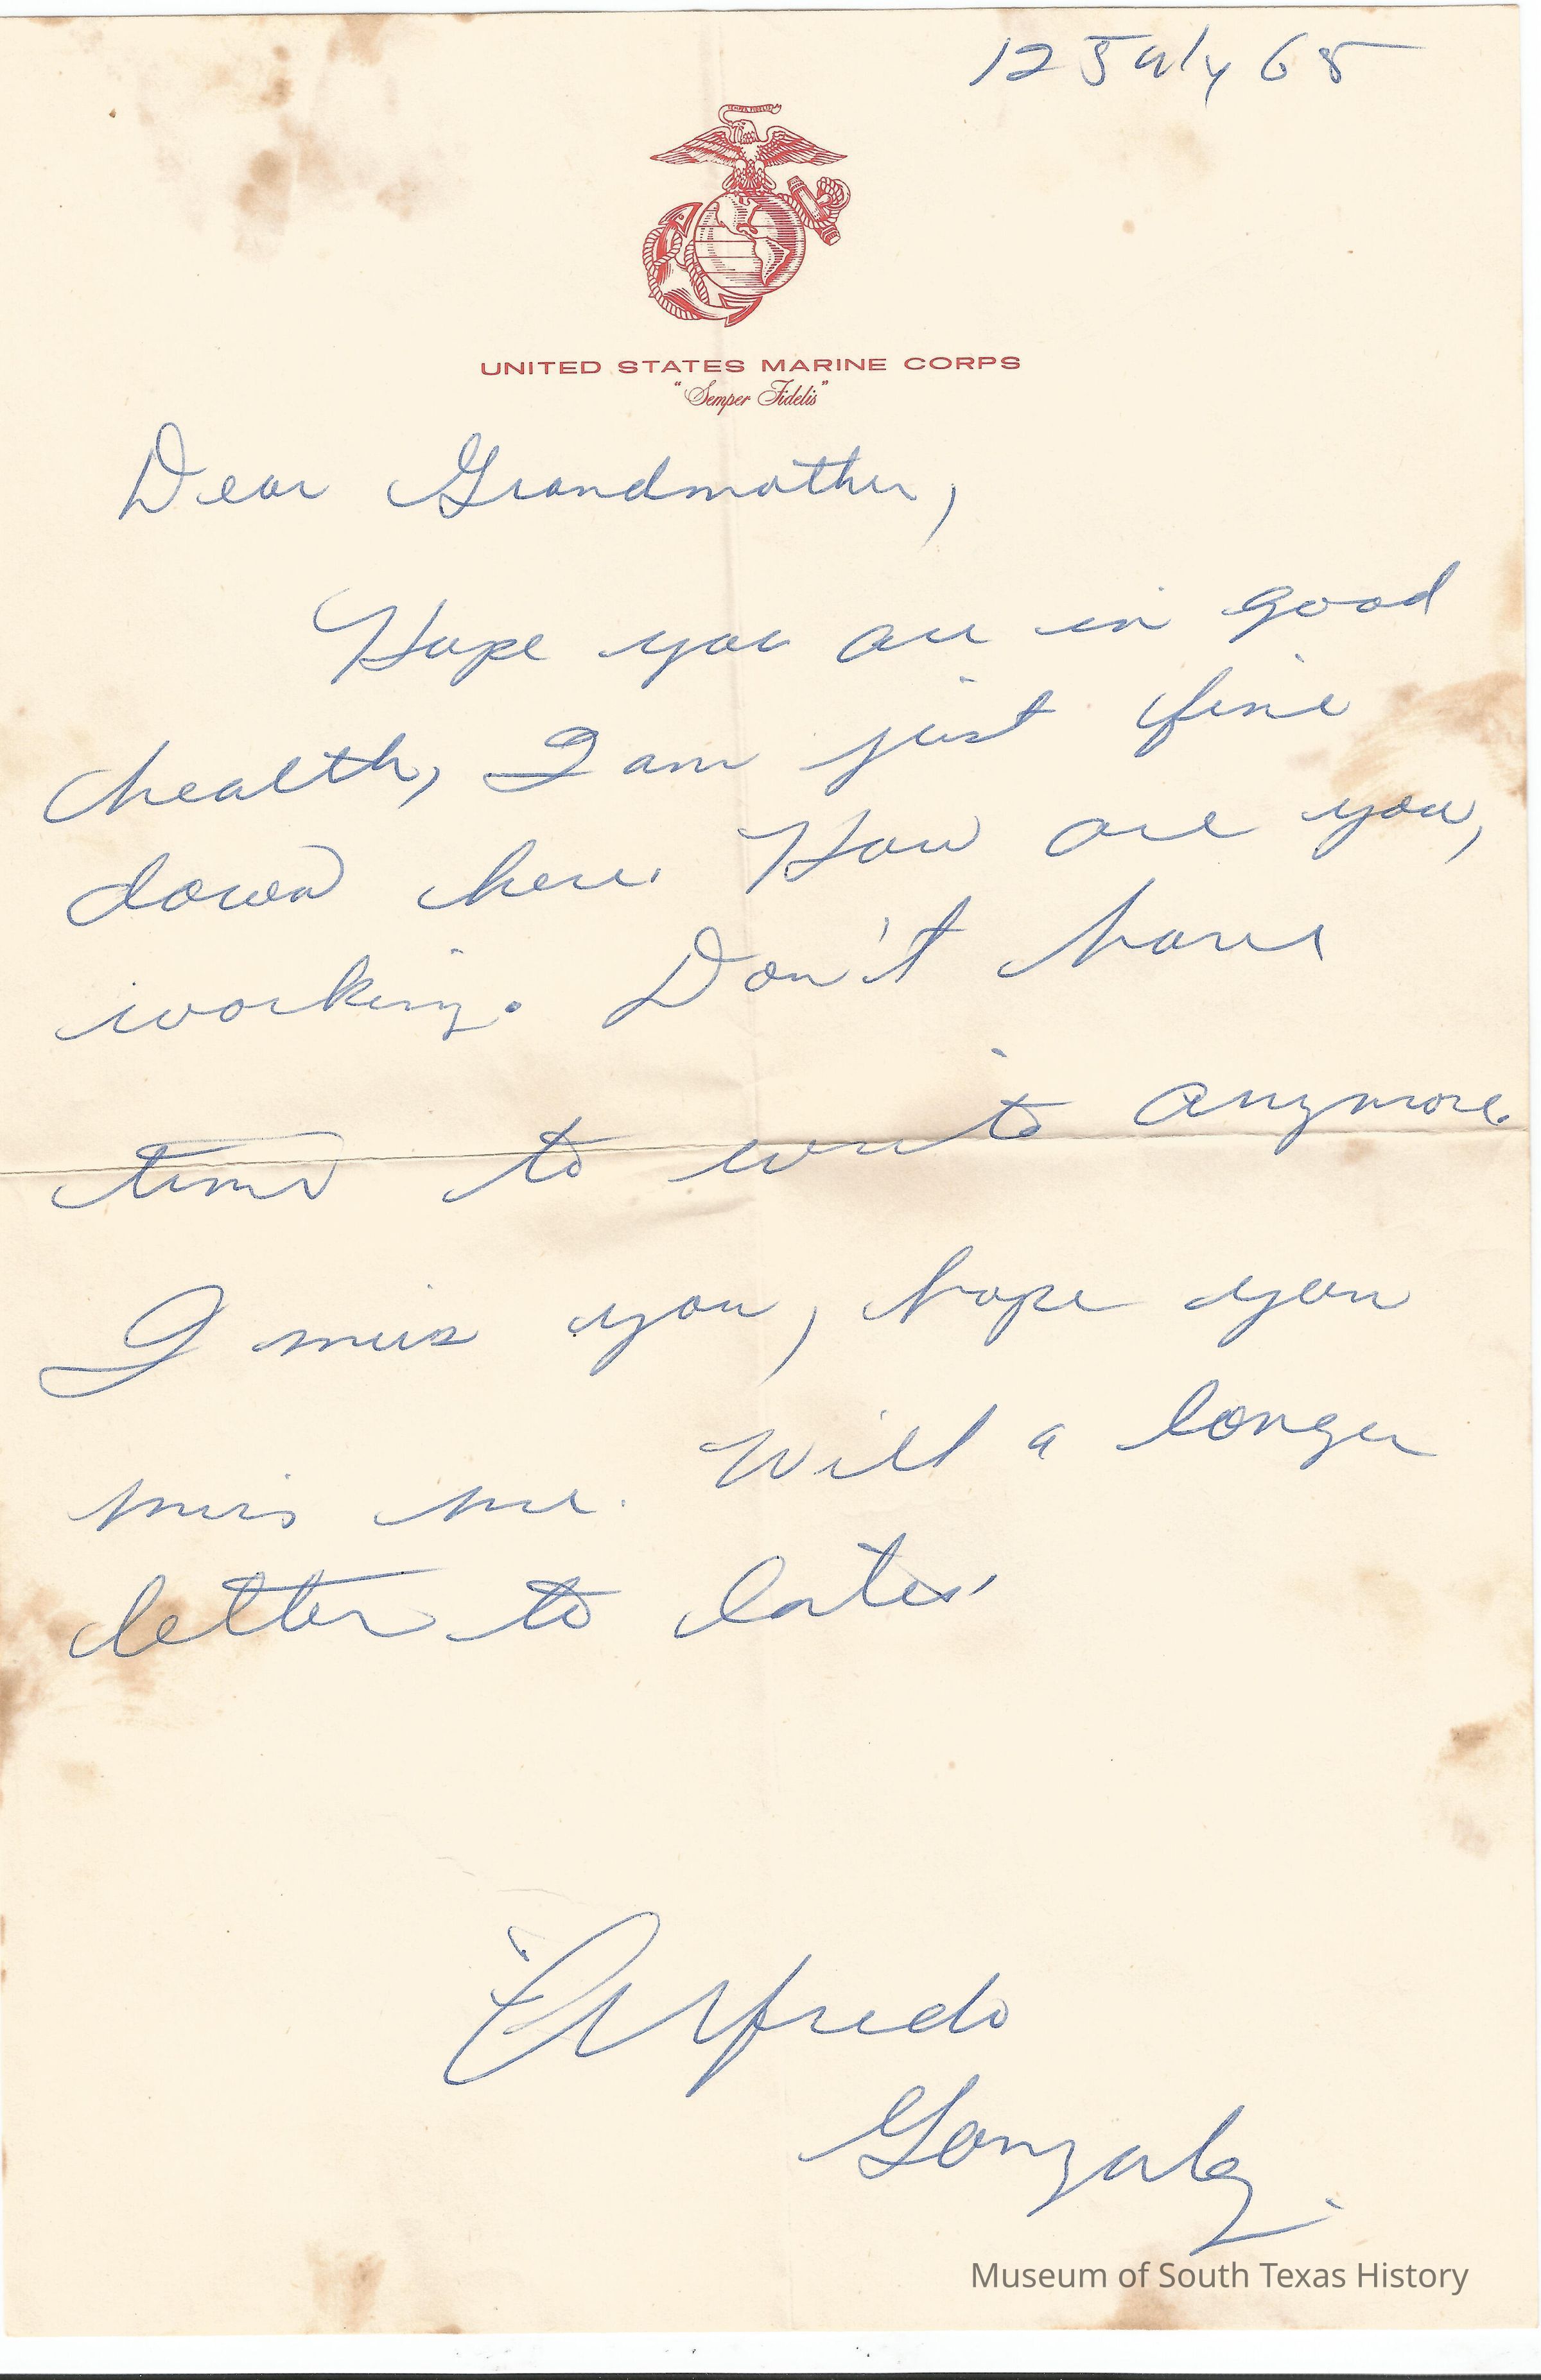 12 July 65
SEMPER FIDELIS
UNITED STATES MARINE CORPS
"Semper Fidelis"
Dear Grandmother,
Hope you are in good
health, I am just fine
down here. How are you,
working. Don't have
time to write anymore.
I miss you, hope you
miss me. Will a longer
letter to later.
Alfredo
Gonzalez.
Museum of South Texas History